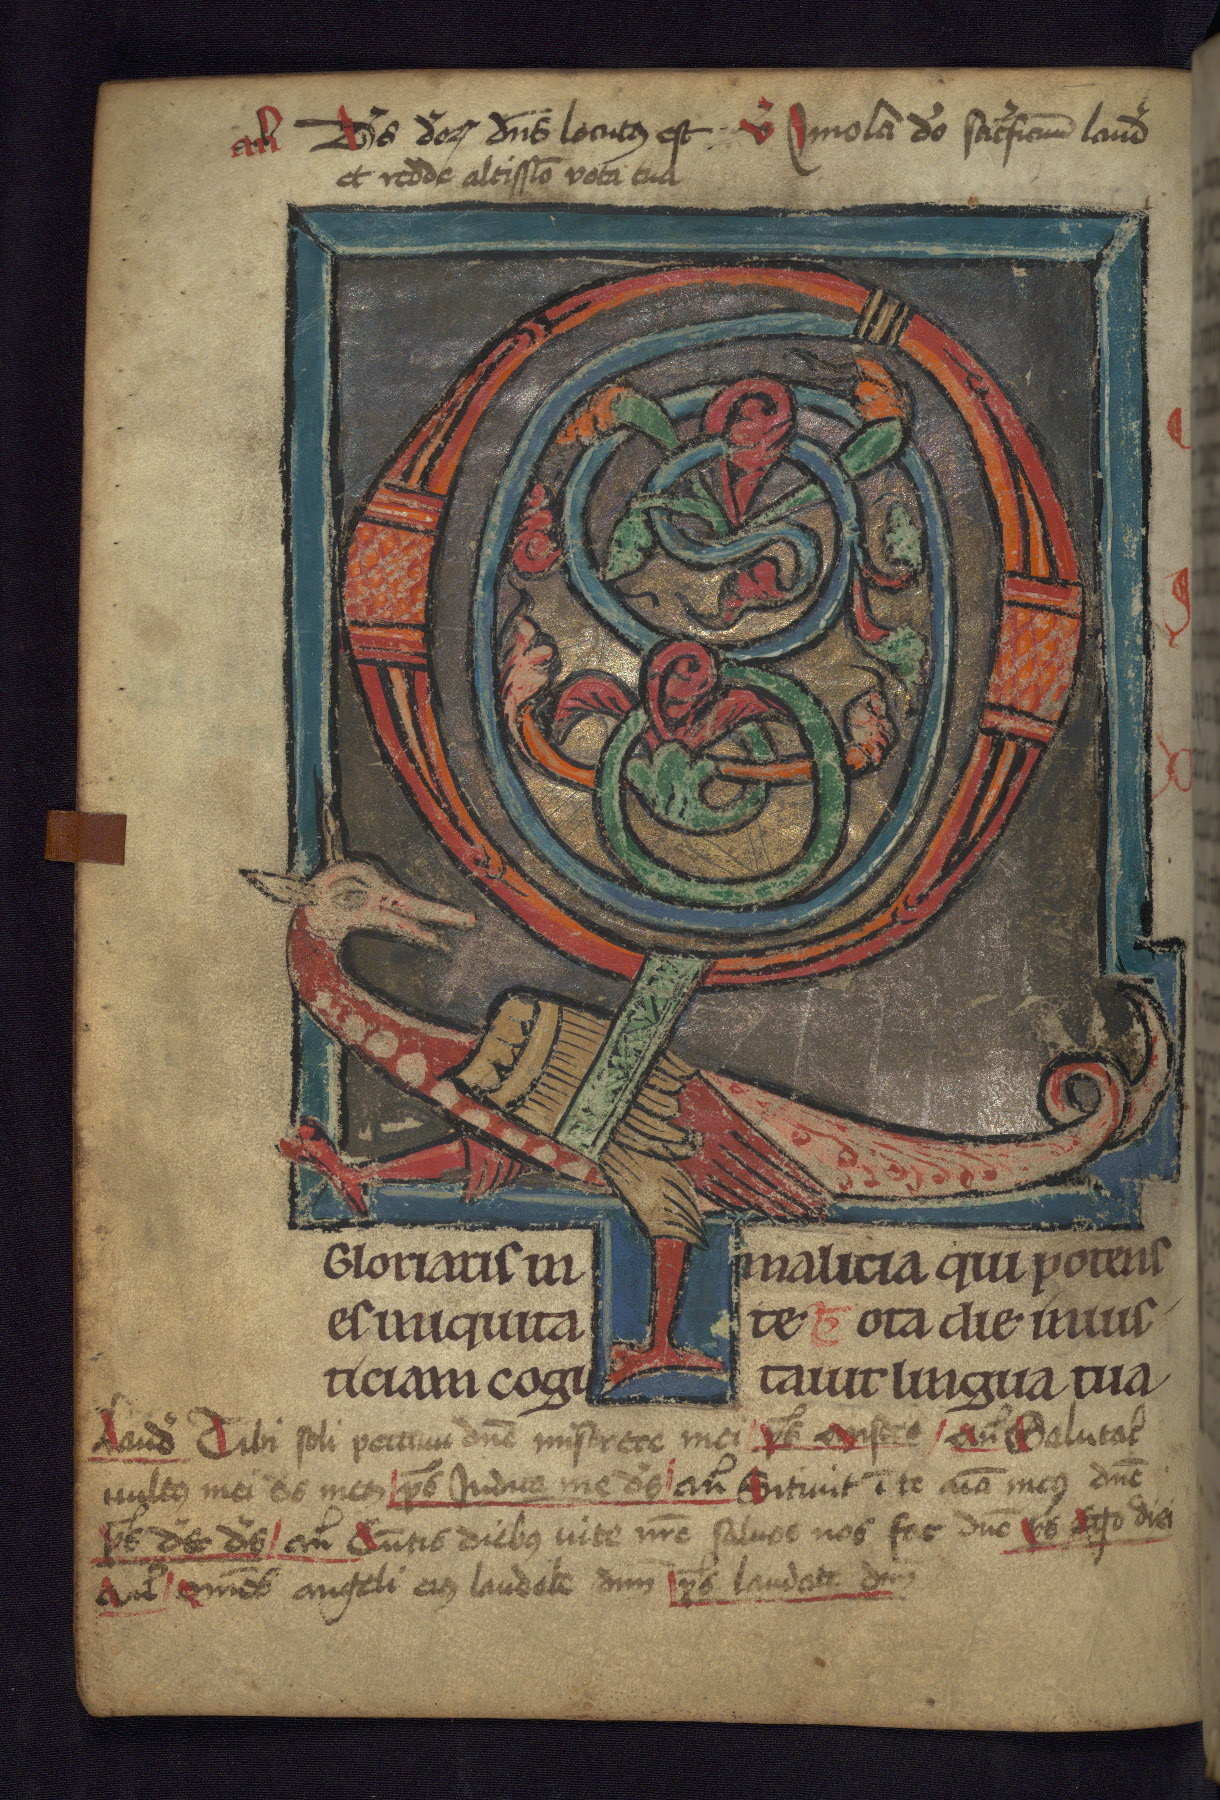 an̄ Ds deoꝝ dn̄s locutꝰ est v̊ Imola do sacͥficiū laud̾
et redde altissīo vota tua
Q
Gloriaris in malicia qui potens
es iniquita te Tota die inius
ticiam cogi tauit lingua tua
laud̾ Tibi soli peccaui dn̄e miserere mei ps̄ miserere an̄ Salutar̄
uultꝰ mei ds̄ meus ps̄ Iudica me ds̄ an̄ Sitiuit ī te aīa meꝰ dn̄e
ps̄ ds̄ ds̄ an̄ Cūctis diebꝰ uite nr̄e saluos nos fac dn̄e ps̄
an̄ om̄es angeli eiꝰ laudate dnm̄ ps̄ laudate dnm̄